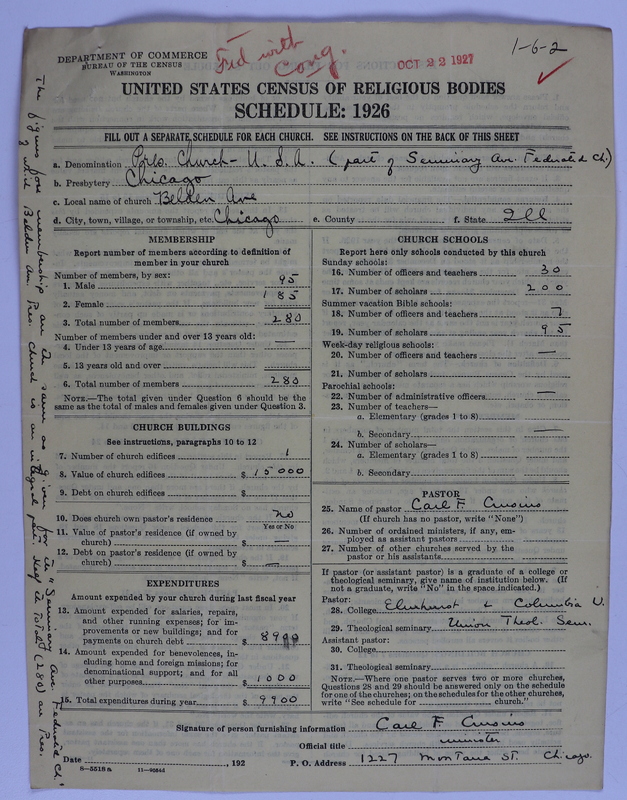 DEPARTMENT OF COMMERCE
BUREAU OF THE CENSUS
WASHINGTON
Fed with
Cong.
OCT 22 1927
1-6-2
UNITED STATES CENSUS OF RELIGIOUS BODIES
SCHEDULE: 1926
FILL OUT A SEPARATE SCHEDULE FOR EACH CHURCH. SEE INSTRUCTIONS ON THE BACK OF THIS SHEET
a. Denomination Pres. Church - U.S.A. (part of Seminary Av. Federated Ch.)
b. Presbytery Chicago
c. Local name of church Belden Ave
d. City, town, village, or township, etc. Chicago e. County f. State Ill
MEMBERSHIP
Report number of members according to definition of
member in your church
Number of members, by sex:
1. Male 95
2. Female 185
3. Total number of members 280
Number of members under and over 13 years old:
4. Under 13 years of age —
5. 13 years old and over
6. Total number of members 280
NOTE.—The total given under Question 6 should be the
same as the total of males and females given under Question 3.
CHURCH BUILDINGS
See instructions, paragraphs 10 to 12
7. Number of church edifices 1
8. Value of church edifices $ 15000
9. Debt on church edifices $
10. Does church own pastor's residence no
Yes or No
11. Value of pastor's residence (if owned by
church) $ —
12. Debt on pastor's residence (if owned by
church) $ —
EXPENDITURES
Amount expended by your church during last fiscal year
13. Amount expended for salaries, repairs,
and other running expenses; for im-
provements or new buildings; and for
payments on church debt $
14. Amount expended for benevolences, in-
cluding home and foreign missions; for
denominational support; and for all
other purposes $ 1000
15. Total expenditures during year $ 9900
CHURCH SCHOOLS
Report here only schools conducted by this church
Sunday schools:
16. Number of officers and teachers 30
17. Number of scholars 200
Summer vacation Bible schools:
18. Number of officers and teachers 7
19. Number of scholars 95
Week-day religious schools:
20. Number of officers and teachers —
21. Number of scholars
Parochial schools:
22. Number of administrative officers —
23. Number of teachers—
a. Elementary (grades 1 to 8)
b. Secondary —
24. Number of scholars—
a. Elementary (grades 1 to 8)
b. Secondary
PASTOR
25. Name of pastor Carl F.
(If church has no pastor, write "None")
26. Number of ordained ministers, if any, em-
ployed as assistant pastors
27. Number of other churches served by the
pastor or his assistants
If pastor (or assistant pastor) is a graduate of a college or
theological seminary, give name of institution below. (If
not a graduate, write "No" in the space indicated.)
Pastor:
28. College Elmhurst & Columbia U.
29. Theological seminary Union Theol. Sem.
Assistant pastor:
30. College
31. Theological seminary
NOTE.—Where one pastor serves two or more churches,
Questions 28 and 29 should be answered only on the schedule
for one of the churches; on the schedules for the other churches,
write "See schedule for church."
Signature of person furnishing information Carl F.
Official title minister
Date , 192 P. O. Address 1227 Montana St. Chicago.
8-5518a 11-9684d
The figures for membership are the same as given for the "Seminary Ave. Federated Ch.
of which Belden Av. Pres. church is an integral part. Half the total (280) are Pres.